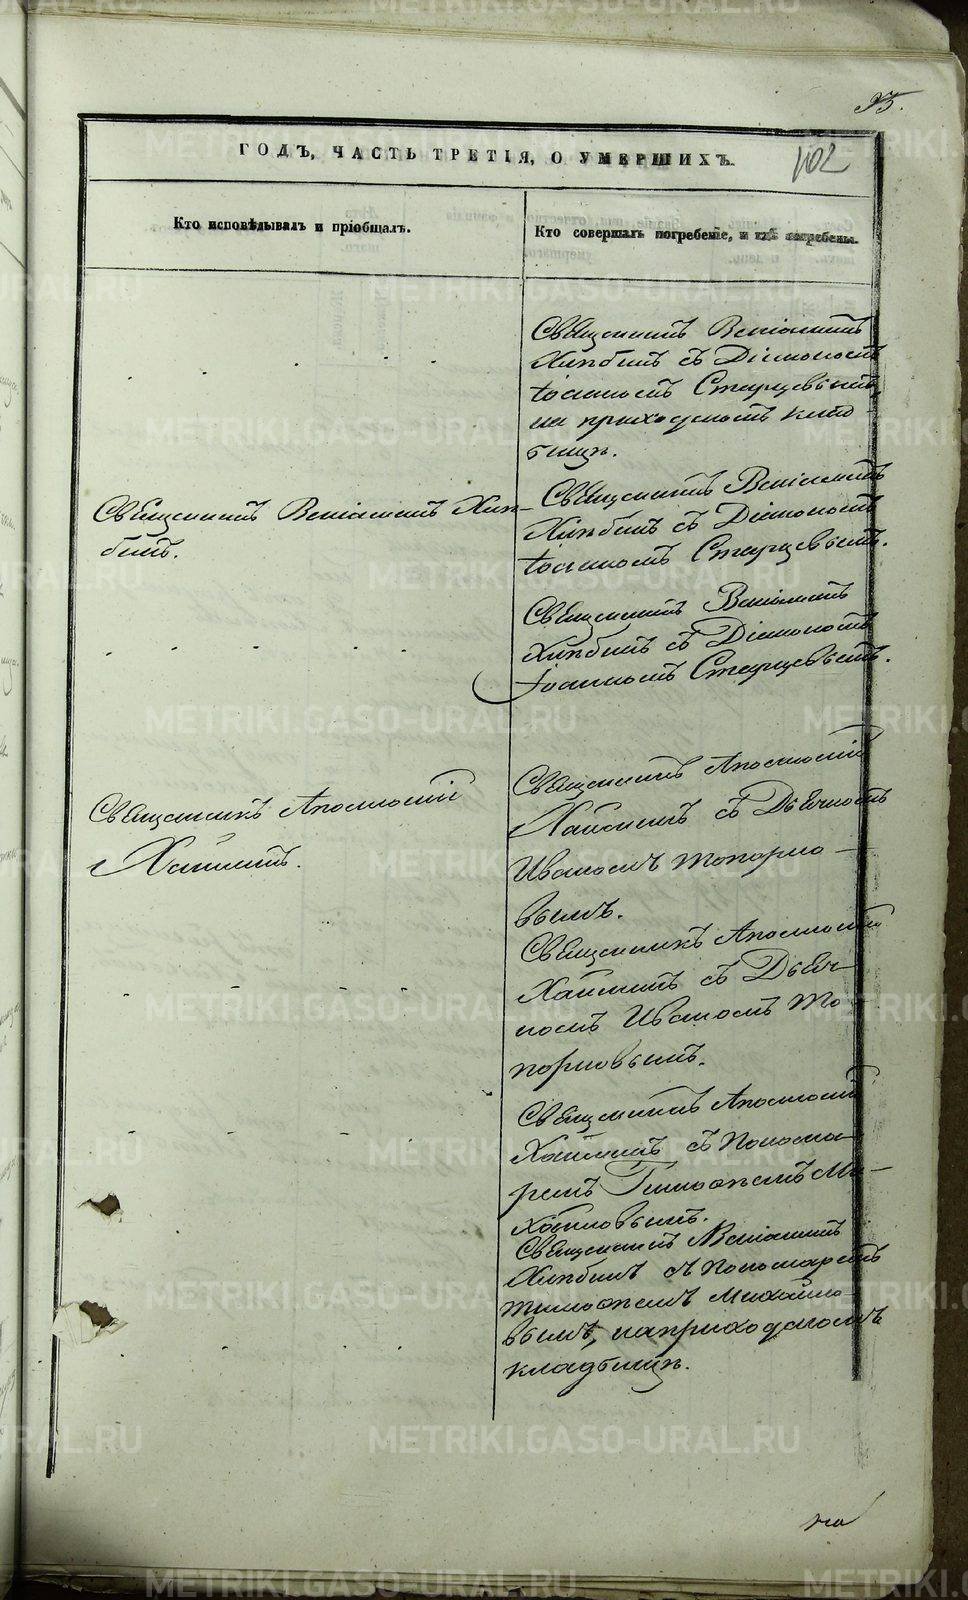 95.
ГОДЪ, ЧАСТЬ ТРЕТІЯ, О УМЕРШИХЪ.
102
Кто исповѣдывалъ и пріобщалъ.
Кто совершалъ погребеніе, и гдѣ погребены.
Священникъ Веніаминъ
Хлѣбинъ съ Діакономъ
Іоанномъ Старцевымъ,
на приходскомъ клад-
бищѣ.
Священникъ Веніаминъ Хлѣ-
бинъ.
Священникъ Веніаминъ
Хлѣбинъ съ Діакономъ
Іоанномъ Старцевымъ.
Священникъ Веніаминъ
Хлѣбинъ съ Діакономъ
Іоанномъ Старцевымъ.
Священникъ Аполлоній
Священникъ Аполлоній
съ Дьячкомъ
Иваномъ Топорко-
вымъ.
Священникъ Аполлоній
съ Дьяч-
комъ Иваномъ То-
порковымъ.
Священникъ Аполлоній
съ Понома-
ремъ Тимофеемъ Ми-
хайловымъ.
Священникъ Веніаминъ
Хлѣбинъ съ Пономаремъ
Тимофеемъ Михайло-
вымъ, на приходскомъ
кладбищѣ.
METRIKI.GASO-URAL.RU